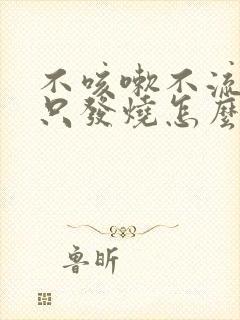 不咳嗽不流
只發燒怎麼
魯昕